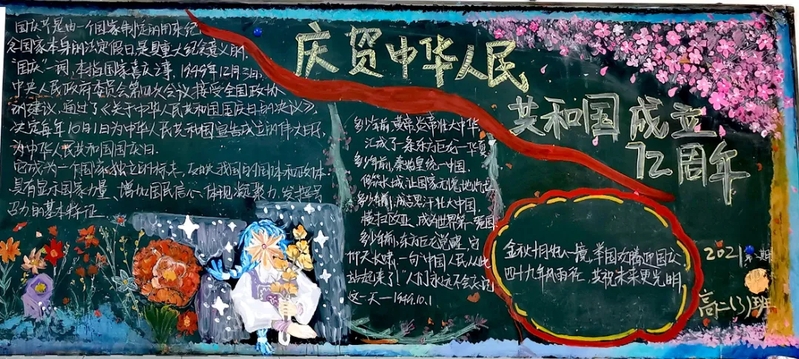 国庆节是由一个国家制定的用来纪
念国家本身的法定假日是具重大纪念意义的.
"国庆"一词,本指国家喜庆之事,1949年12月3日,
中央人民政府委员会第四次会议接受全国政协
的建议,通过了《关于中华人民共和国国庆日的决议》,
决定每年10月1日为中华人民共和国宣告成立的伟大日子
为中华人民共和国国庆日.
它成为一个国家独立的标志,反映我国的国体和政体.
具有显示国家力量、增加国民信心,体现凝聚力,发挥号
召力的基本特征
庆贺中华人民
共和国成立
72周年
多少年前,黄帝炎帝壮大中华
汇成了一条东方巨龙一华夏
多少年前,秦始皇统一中国.
多少年前,成吉思汗壮大中国,
横扫欧亚,成为世界第一强国
多少年前,东方巨龙觉醒,它
仰天长啸:一句"中国人民从此
站起来了!人们永远不会忘记
这一天一1949.10.1
金秋十月 举国欢腾迎国庆
四十九年风雨在,共祝未来更光明.
2021 第一期
高二(3)班